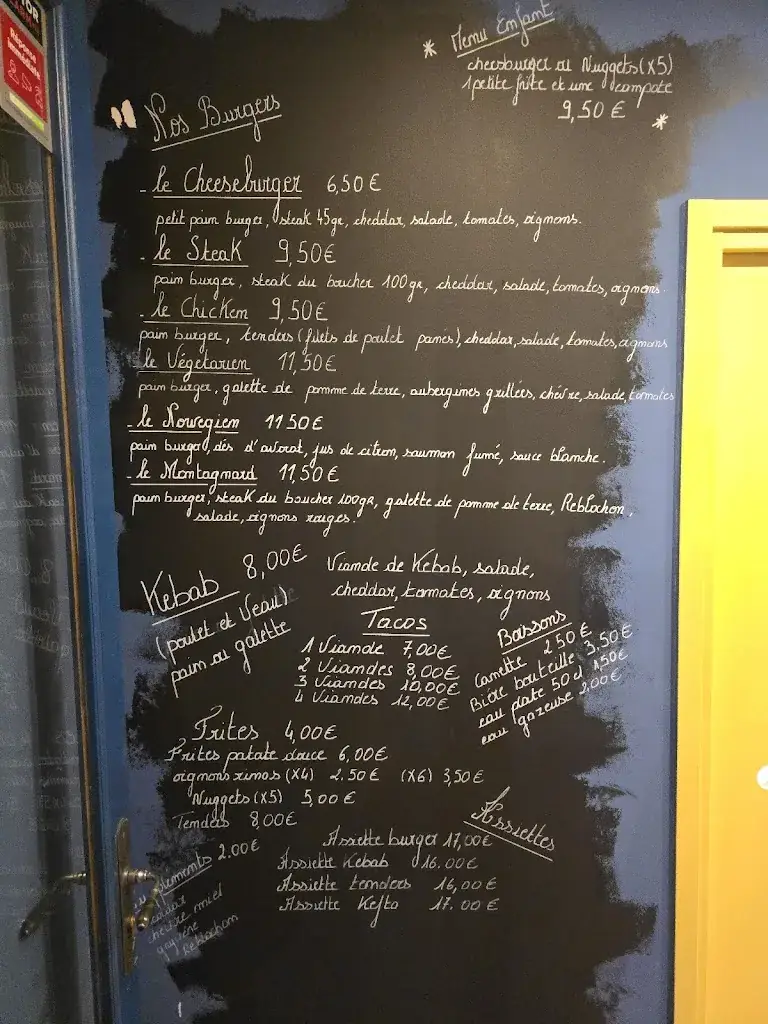 Réponse
immédiate
* Menu Enfant
cheesburger ou Nuggets (x5)
1 petite frite et une compote
9,50 € *
Nos Burgers
- le Cheeseburger 6,50 €
petit pain burger, steak 45gr, cheddar, salade, tomates, oignons.
- le Steak 9,50€
pain burger, steak du boucher 100gr, cheddar, salade, tomates, oignons.
- le Chicken 9,50€
pain burger, tenders (filets de poulet panés), cheddar, salade, tomates, oignons
- le Végétarien 11,50€
pain burger, galette de pomme de terre, aubergines grillées, chèvre, salade, tomates
- le Norwegien 11 50€
pain burger, dés d'avocat, jus de citron, saumon fumé, sauce blanche.
- le Montagnard 11,50€
pain burger, steak du boucher 100gr, galette de pomme de terre, Reblochon,
salade, oignons rouges.
Kebab 8,00€
(poulet et Veau)
pain ou galette
Viande de Kebab, salade,
cheddar, tomates, oignons
Tacos
1 Viande 7,00€
2 Viandes 8,00€
3 Viandes 10,00€
4 Viandes 12,00€
Boissons
Canette 2 50 €
Bière bouteille 3.50€
eau plate 50 cl 1,50€
eau gazeuse 2.00€
Frites 4,00€
Frites patate douce 6,00€
oignons rings (X4) 2.50 € (X6) 3,50€
Nuggets (x5) 5,00 €
Tenders 8,00€
Assiettes
Assiette burger 17,00€
Assiette Kebab 16.00€
Assiette tenders 16,00€
Assiette Kefta 17.00 €
2.00€
chèvre miel
Reblochon